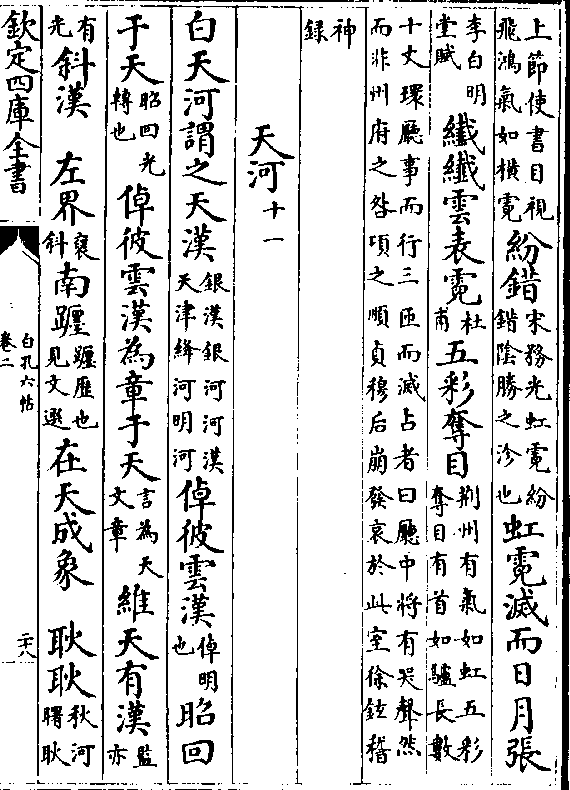 上節使書目視飛鴻氣如橫霓紛錯宋務光虹霓紛錯陰勝之沴也虹霓滅而日月張
李白明堂賦纖纖雲表霓杜甫五彩奪目荆州有氣如虹五彩奪目有首如驢長數
十丈環廳事而行三匝而滅占者曰廳中將有哭聲然而非州府之咎項之順貞穆后崩發哀於此室徐鉉稽
神錄
天河十一
白天河謂之天漢銀漢銀河河漢天津絳河明河倬彼雲漢倬明也昭回
于天昭回光轉也倬彼雲漢為章于天言為天文章維天有漢監亦
有光斜漢左界裒斜南躔躔歷也見文選在天成象耿耿秋河曙耿
欽定四庫全書
白孔六帖
卷二
二十八